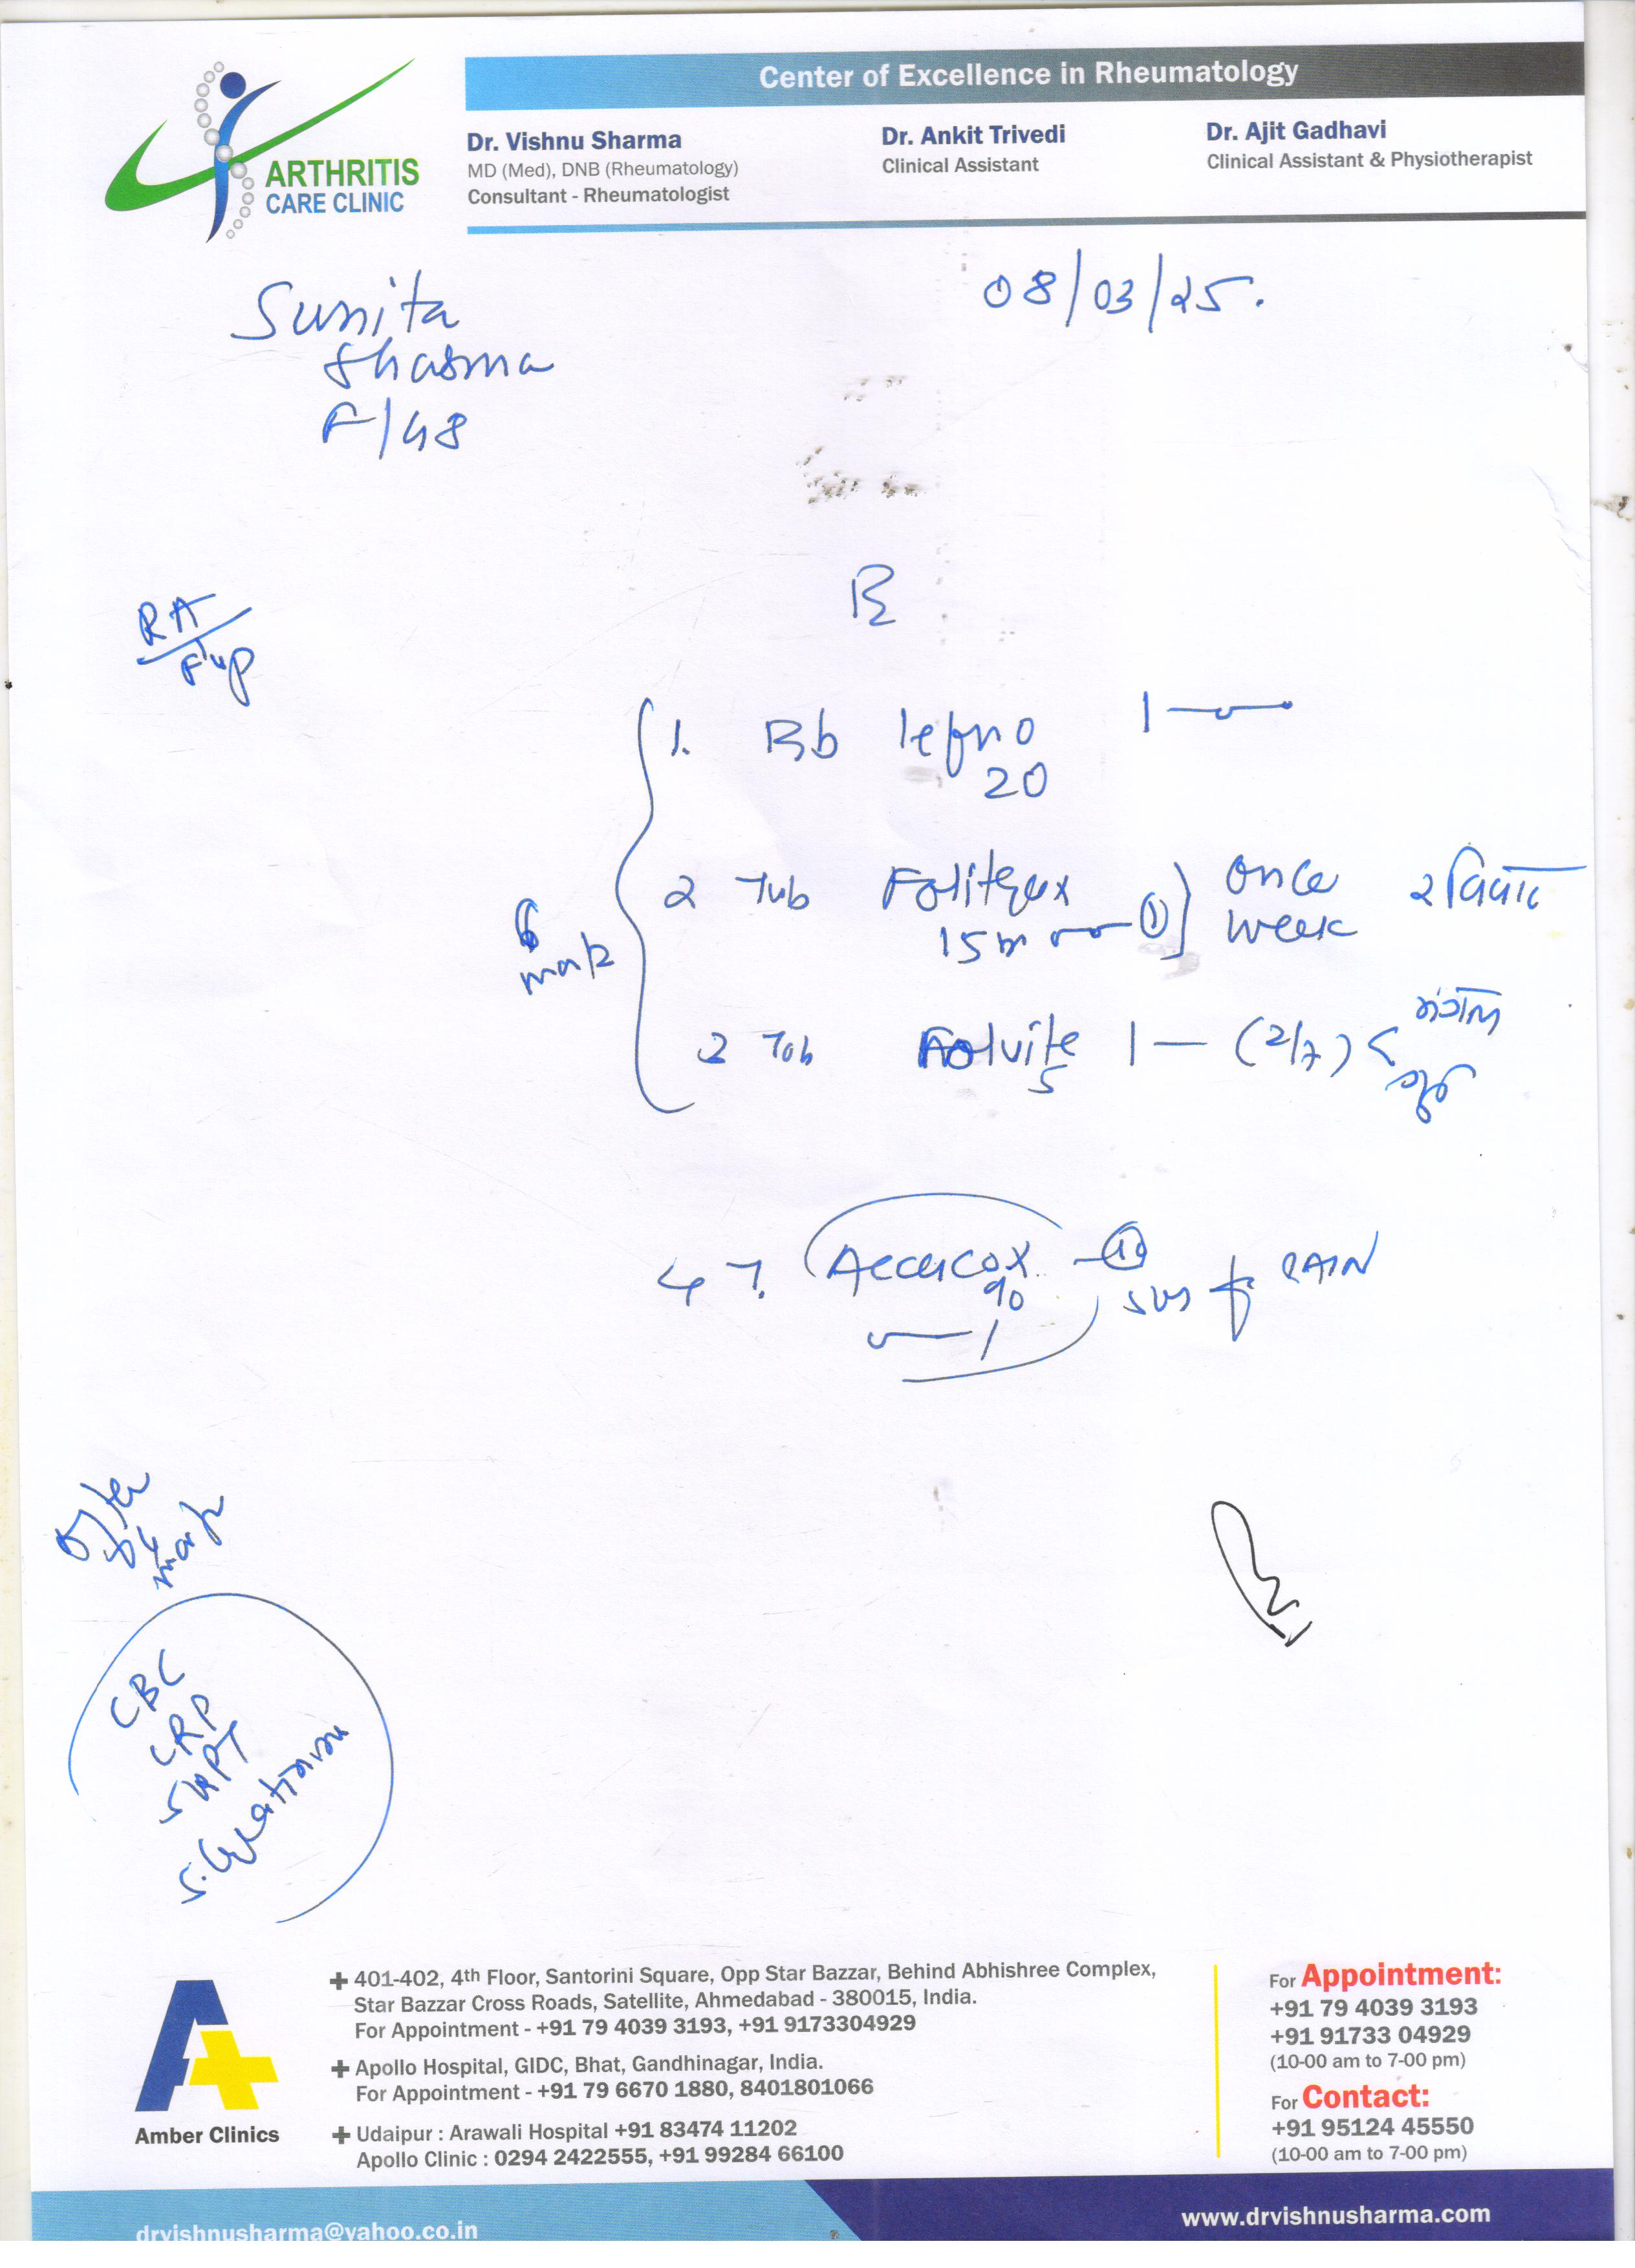 ARTHRITIS
CARE CLINIC
Center of Excellence in Rheumatology
Dr. Vishnu Sharma
MD (Med), DNB (Rheumatology)
Consultant - Rheumatologist
Dr. Ankit Trivedi
Clinical Assistant
Dr. Ajit Gadhavi
Clinical Assistant & Physiotherapist
Sunita
Sharma
F/48
08/03/25.
RA
F/up
1. Tab lefno 1
20
2 Tab Folitrax
15 ①
once
week
રવિવાર
6
3 Tab Folvite 1 — (2/7) <
5
મંગળ
4 T.
90
PAIN
CBC
CRP
SGPT
S. Creatinine
Amber Clinics
+ 401-402, 4th Floor, Santorini Square, Opp Star Bazzar, Behind Abhishree Complex,
Star Bazzar Cross Roads, Satellite, Ahmedabad - 380015, India.
For Appointment - +91 79 4039 3193, +91 9173304929
+ Apollo Hospital, GIDC, Bhat, Gandhinagar, India.
For Appointment - +91 79 6670 1880, 8401801066
+ Udaipur : Arawali Hospital +91 83474 11202
Apollo Clinic : 0294 2422555, +91 99284 66100
For Appointment:
+91 79 4039 3193
+91 91733 04929
(10-00 am to 7-00 pm)
For Contact:
+91 95124 45550
(10-00 am to 7-00 pm)
drvishnusharma@yahoo.co.in
www.drvishnusharma.com